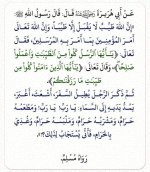 عَنْ أَبِي هُرَيْرَةَ رَضِيَ اللَّهُ عَنْهُ قَالَ: قَالَ رَسُولُ اللَّهِ ﷺ:
«إِنَّ اللَّهَ طَيِّبٌ لَا يَقْبَلُ إِلَّا طَيِّبًا، وَإِنَّ اللَّهَ تَعَالَى
أَمَرَ الْمُؤْمِنِينَ بِمَا أَمَرَ بِهِ الْمُرْسَلِينَ، فَقَالَ
تَعَالَى: ﴿يَا أَيُّهَا الرُّسُلُ كُلُوا مِنَ الطَّيِّبَاتِ وَاعْمَلُوا
صَالِحًا﴾، وَقَالَ تَعَالَى: ﴿يَا أَيُّهَا الَّذِينَ آمَنُوا كُلُوا مِنْ
طَيِّبَاتِ مَا رَزَقْنَاكُمْ﴾.
ثُمَّ ذَكَرَ الرَّجُلَ يُطِيلُ السَّفَرَ، أَشْعَثَ، أَغْبَرَ،
يَمُدُّ يَدَيْهِ إِلَى السَّمَاءِ: يَا رَبِّ! يَا رَبِّ! وَمَطْعَمُهُ
حَرَامٌ، وَمَشْرَبُهُ حَرَامٌ، وَمَلْبَسُهُ حَرَامٌ، وَغُذِيَ
بِالْحَرَامِ، فَأَنَّى يُسْتَجَابُ لِذَلِكَ؟!».
رَوَاهُ مُسْلِمٌ.